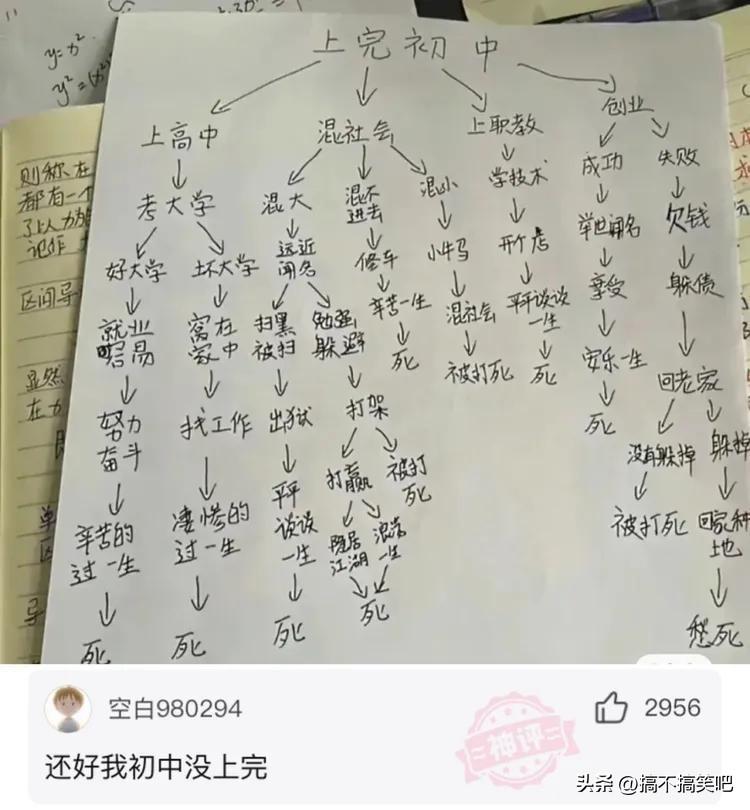 y=x²
上完初中
上高中
混社会
上职教
创业
考大学
混大
混不
进去
混小
学技术
成功
失败
好大学
坏大学
远近
闻名
修车
小牛马
开个店
举世闻名
欠钱
就业
容易
窝在
家中
扫黑
被扫
勉强
躲避
辛苦一生
混社会
平平谈谈
一生
享受
躲债
努力
奋斗
找工作
出狱
打架
死
被打死
死
安乐一生
回老家
辛苦的
过一生
凄惨的
过一生
平平
谈谈
一生
打赢
被打
死
死
没有躲掉
躲掉
隐居
江湖
浪荡
一生
被打死
回家种
地
死
死
死
死
愁死
则称在
都有一个
记作
区间导
显然
在
单
区
导
空白980294
神评
2956
还好我初中没上完
头条 @搞不搞笑吧